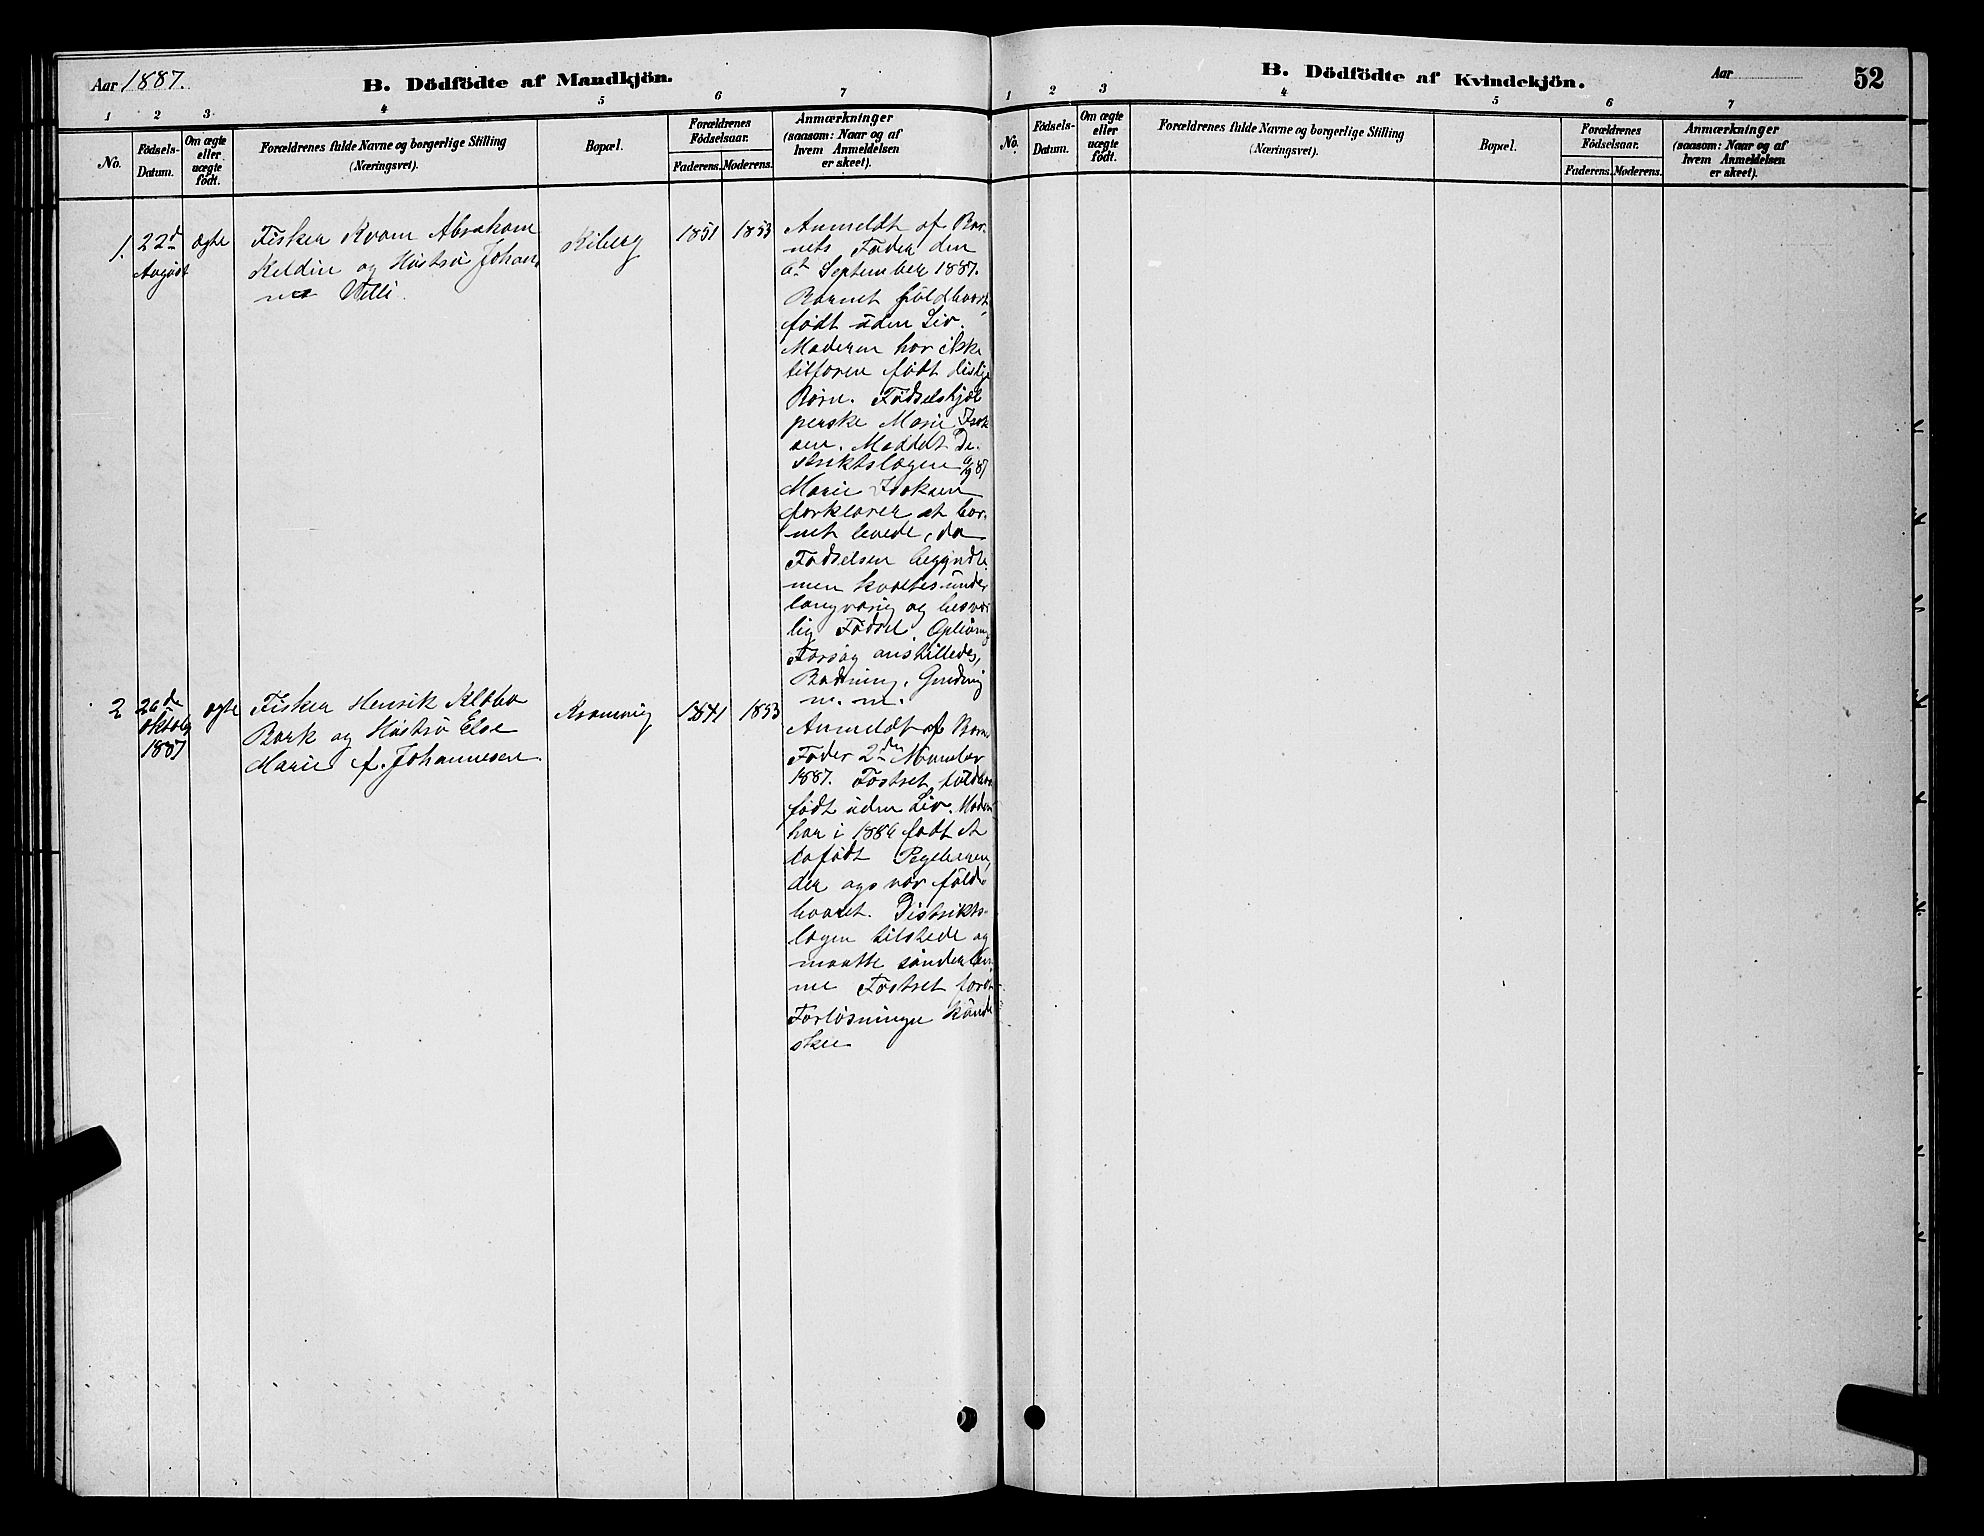 Aar 1887.
B. Dödfödte af Mandkjön.
1 2 3 4 5 6 7
No.
Födsels-
Datum.
Om ægte
eller
uægte
födt.
Forældrenes fulde Navne og borgerlige Stilling
(Næringsvei).
Bopæl.
Forældrenes
Födselsaar.
Faderens. Moderens.
Anmærkninger
(saasom: Naar og af
hvem Anmeldelsen
er skeet).
1. 22d
August
ægte
Fisker Kvam Abraham
Keldin og Hustru Johan
na
Kiberg
1851 1853
Anmeldt af Bar-
nets Fader den
September 1887.
Barnet fuldbaaret,
født uden Liv.
Moderen har ikke
tilforn født
Børn. Fødselshjæl
perske Marie Isak
sen. Meddelt Di-
striktslægen
Marie Isaksen
forklarer at bar-
net levede, da
Fødselsen begyndte
men kvaltes under
langvarig og besvær
lig Fødsel. Oplivnings
Forsøg anstilledes,
Badning, Gnidning
m. m.
2 26de
oktober
1887
ægte
Fisker Henrik
Bark og Hustru Else
Marie f. Johannesen.
Kramvig
1841 1853
Anmeldt af Barnets
Fader 2den November
1887. Fostret fuldbaaret
født uden Liv. Moderen
har i 1886 født et
dødfødt Pigebarn,
der ogs var fuld-
baaret. Distrikts-
lægen tilstede og
maatte sønderlem-
me Fostret førend
Forløsningen kunde
skee
B. Dödfödte af Kvindekjön.
Aar
52
1 2 3 4 5 6 7
No.
Födsels-
Datum.
Om ægte
eller
uægte
födt.
Forældrenes fulde Navne og borgerlige Stilling
(Næringsvei).
Bopæl.
Forældrenes
Födselsaar.
Faderens. Moderens.
Anmærkninger
(saasom: Naar og af
hvem Anmeldelsen
er skeet).